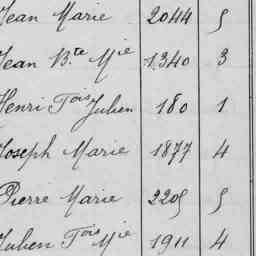 Jean Marie 2044 5
Jean Bte Mie 1340 3
Henri Fois Julien 180 1
Joseph Marie 1877 4
Pierre Marie 2205 5
Julien Fois Mie 1911 4